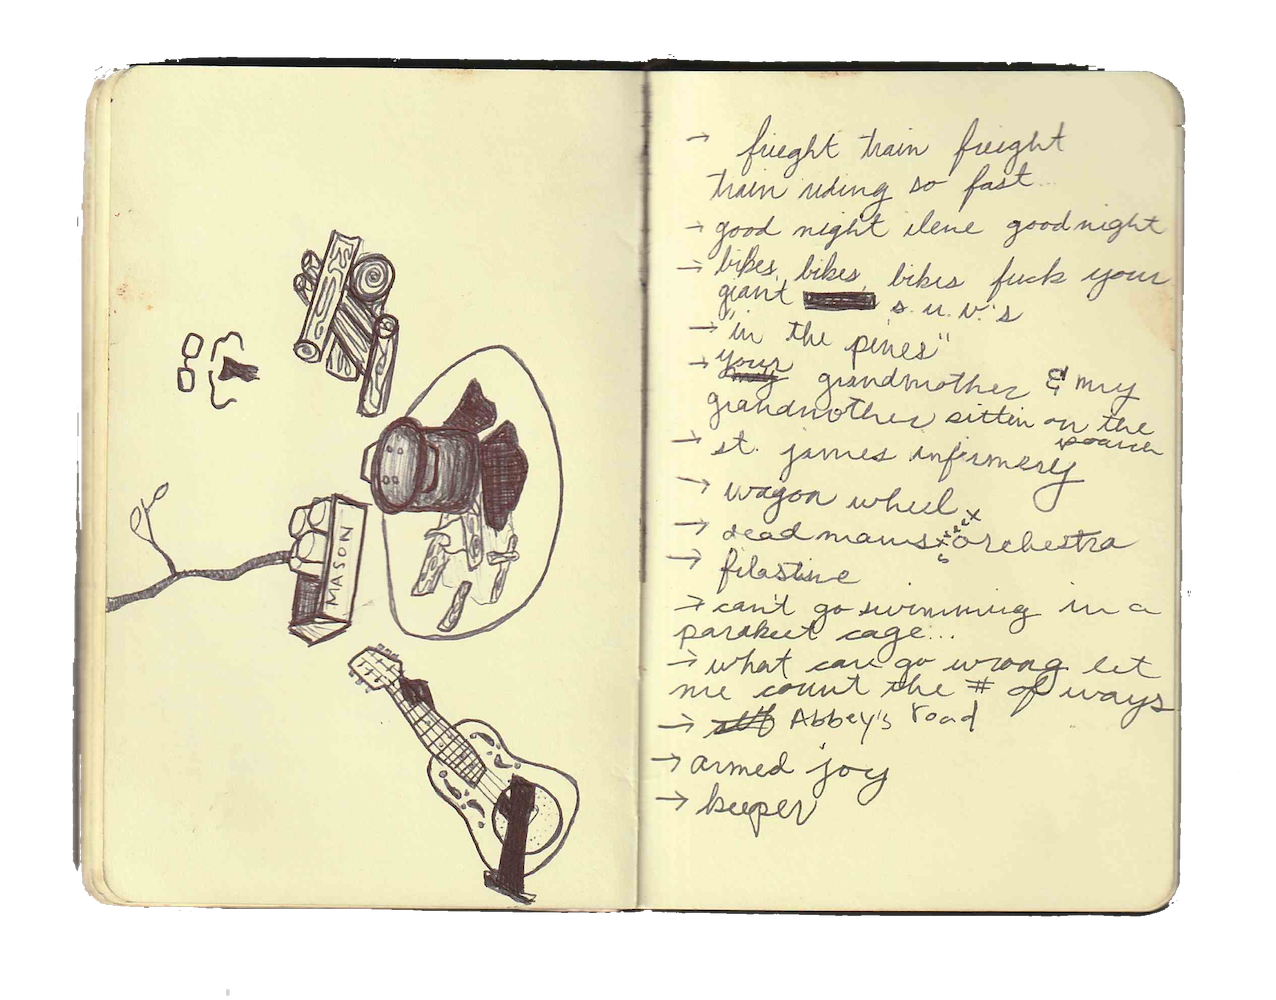 MASON
→ frieght train freight
train riding so fast...
→ good night ilene goodnight
→ bikes, bikes, bikes fuck your
giant s.u.v.'s
→ "in the pines"
→ your grandmother & my
grandmother sittin on the
porch
→ st. james infirmery
→ wagon wheel
→ dead mans orchestra
→ filastine
→ can't go swimming in a
parakeet cage...
→ what can go wrong let
me count the # of ways
→ Abbey's road
→ armed joy
→ keeper